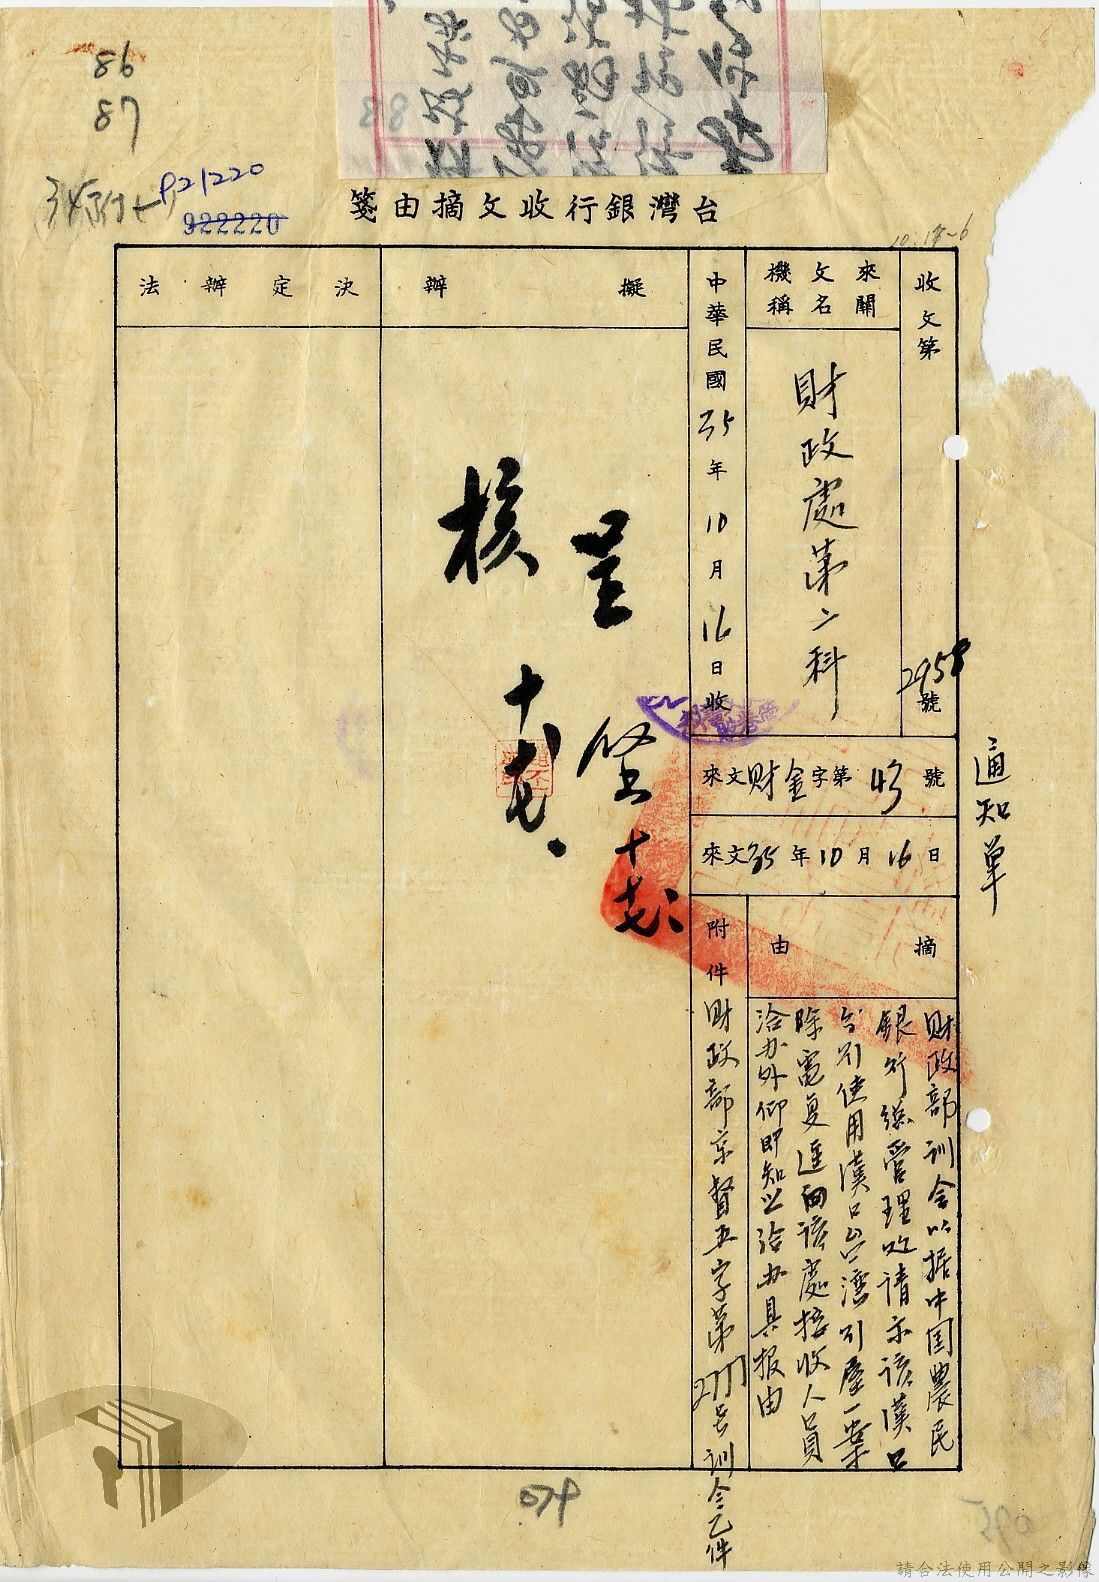 86
87
P21220
922220
台灣銀行收文摘由箋
10.17~6
收文第2958號
來文機關名稱
財政處第二科
中華民國35年10月16日收
來文財金字第43號
來文35年10月16日
通知單
摘由
財政部訓令以据中国農民
銀行總管理处請示该漢口
分引使用漢口台灣引屋一案
除電复逕向该處接收人員
洽办外仰即知照洽办具报由
附件
財政部京督五字第2777号訓令乙件
擬辦
呈
核
堅
十
十
決定辦法
079
請合法使用公開之影像